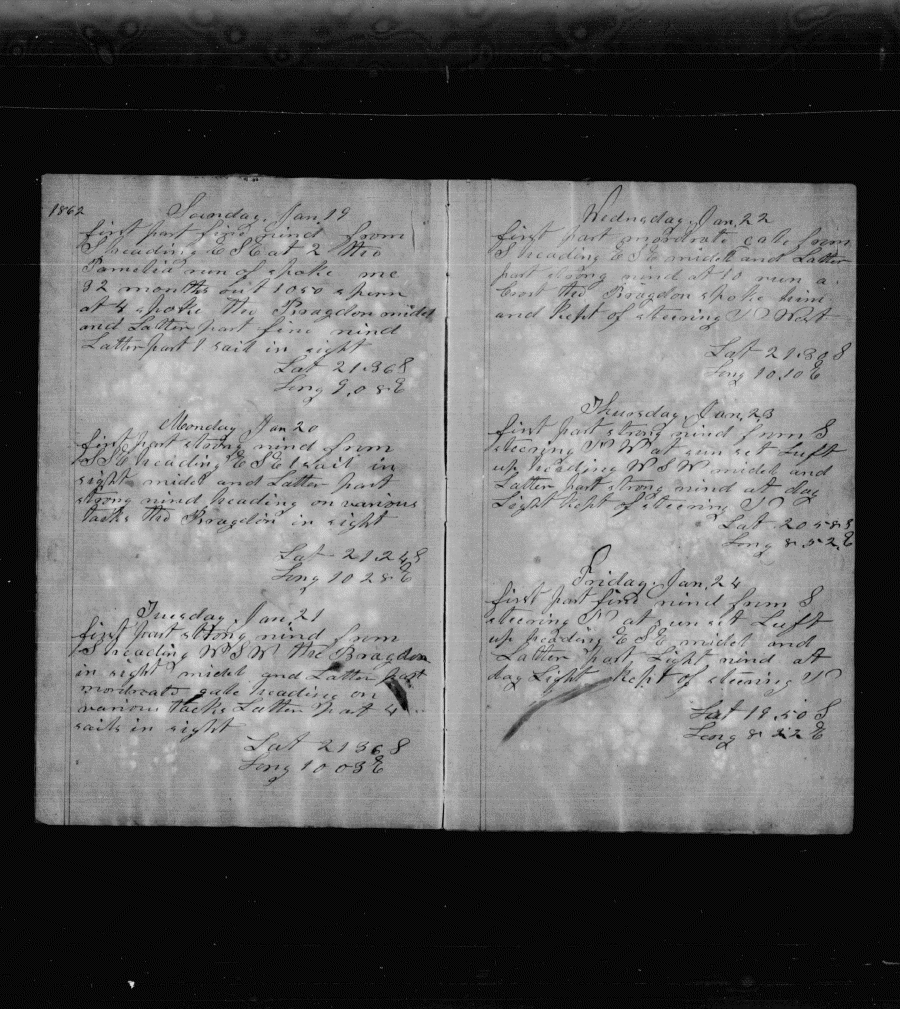 1862
Sunday, Jan, 19
first part fine wind from
S heading E S E at 2 the
Pamelia run of spoke me
32 months out 1050 sperm
at 4 spoke the Bragdon midel
and Latter part fine wind
Latter part 1 sail in sight
Lat 21.36 S
Long 9,08 E
Monday Jan 20
first part strong wind from
S S E heading E S E 1 sail in
sight midel and Latter part
strong wind heading on various
tacks the Bragdon in sight
Lat 21.24 S
Long 10 28 E
Tuesday, Jan, 21
first part strong wind from
S heading W S W the Bragdon
in sight midel and Latter part
mordreate gale heading on
various tacks Latter part 4
sails in sight
Lat 21 36 S
Long 10 03 E
Wednesday, Jan, 22
first part mordrate gale from
S heading E S E midel and Latter
part strong wind at 10 run a
crost the Bragdon spoke him
and kept of steering N West
Lat 21.30 S
Long 10,10 E
Thursday, Jan, 23
first part strong wind from S
steering N W at sun set Luft
up heading W S W midel and
Latter part strong wind at day
Light kept of steering N
Lat 20 58 S
Long 8.52, E
Friday, Jan, 24
first part fine wind from S
steering N at sun set Luft
up heading E S E midel and
Latter part Light wind at
day Light kept of steering N
Lat 19.50 S
Long 8 22 E